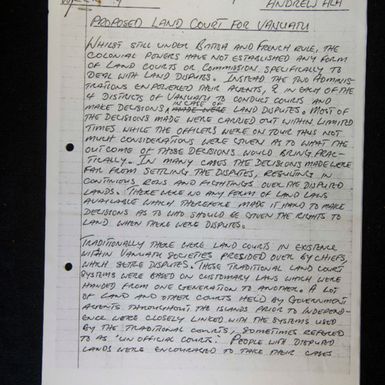 ANDREW ALA
PROPOSED LAND COURT FOR VANUATU
WHILST STILL UNDER BRITISH AND FRENCH RULE, THE
COLONIAL POWERS HAVE NOT ESTABLISHED ANY FORM
OF LAND COURTS OR COMMISSION SPECIFICALLY TO
DEAL WITH LAND DISPUTES. INSTEAD THE TWO ADMINIS-
TRATIONS EMPOWERED THEIR AGENTS, 2 IN EACH OF THE
4 DISTRICTS OF VANUATU TO CONDUCT COURTS AND
MAKE DECISIONS, IN CASE OF LAND DISPUTES. MOST OF
THE DECISIONS MADE WERE CARRIED OUT WITHIN LIMITED
TIMES WHILE THE OFFICERS WERE ON TOUR THUS NOT
MUCH CONSIDERATIONS WERE GIVEN AS TO WHAT THE
OUTCOME OF THOSE DECISIONS WOULD BRING PRAC-
TICALLY. IN MANY CASES THE DECISIONS MADE WERE
FAR FROM SETTLING THE DISPUTES, RESULTING IN
CONTINIOUS ROWS AND FIGHTINGS OVER THE DISPUTED
LANDS. THERE WERE NO ANY FORM OF LAND LAWS
AVAILABLE WHICH THEREFORE MADE IT HARD TO MAKE
DECISIONS AS TO WHO SHOULD BE GIVEN THE RIGHTS TO
LAND WHEN THERE WERE DISPUTES.
TRADITIONALLY THERE WERE LAND COURTS IN EXISTENCE
WITHIN VANUATU SOCIETIES PRESIDED OVER BY CHIEFS,
WHICH SETTLE DISPUTES. THESE TRADITIONAL LAND COURT
SYSTEMS WERE BASED ON CUSTOMARY LAWS WHICH WERE
HANDED FROM ONE GENERATION TO ANOTHER. A LOT
OF LAND AND OTHER COURTS HELD BY GOVERNMENT
AGENTS THROUGHOUT THE ISLANDS PRIOR TO INDEPEND-
ENCE WERE CLOSELY LINKED WITH THE SYSTEMS USED
BY THE TRADITIONAL COURTS, SOMETIMES REFERRED
TO AS 'UN OFFICIAL COURTS.' PEOPLE WITH DISPUTED
LANDS WERE ENCOURAGED TO TAKE THEIR CASES